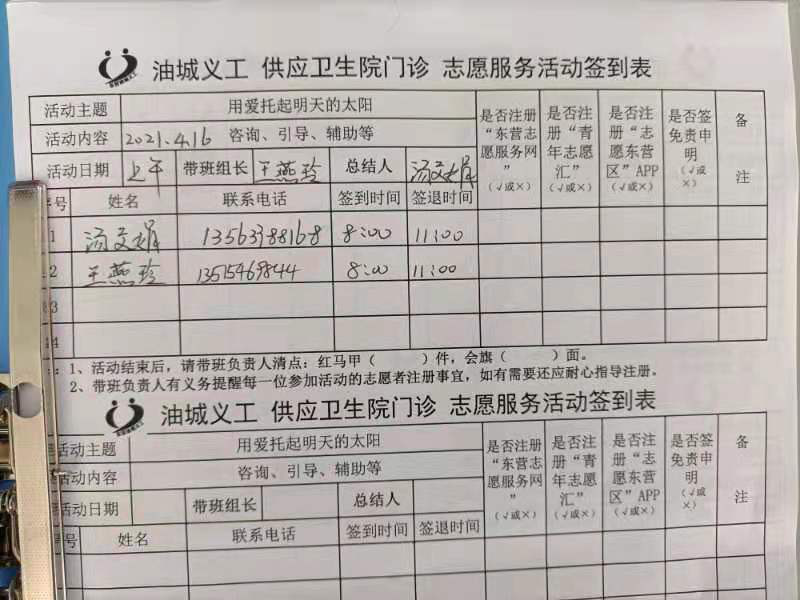 油城义工 供应卫生院门诊 志愿服务活动签到表
活动主题 用爱托起明天的太阳 是否注册“东营志愿服务网”(√或×) 是否注册“青年志愿汇”(√或×) 是否注册“志愿东营区”APP(√或×) 是否签免责申明(√或×) 备注
活动内容 2021.4.16 咨询、引导、辅助等
活动日期 上午 带班组长 王燕玲 总结人 汤文娟
序号 姓名 联系电话 签到时间 签退时间
1 汤文娟 13563988168 8:00 11:00
2 王燕玲 13515469844 8:00 11:00
3
4
：1、活动结束后，请带班负责人清点：红马甲（ ）件，会旗（ ）面。
2、带班负责人有义务提醒每一位参加活动的志愿者注册事宜，如有需要还应耐心指导注册。
油城义工 供应卫生院门诊 志愿服务活动签到表
活动主题 用爱托起明天的太阳 是否注册“东营志愿服务网”(√或×) 是否注册“青年志愿汇”(√或×) 是否注册“志愿东营区”APP(√或×) 是否签免责申明(√或×) 备注
活动内容 咨询、引导、辅助等
活动日期 带班组长 总结人
号 姓名 联系电话 签到时间 签退时间